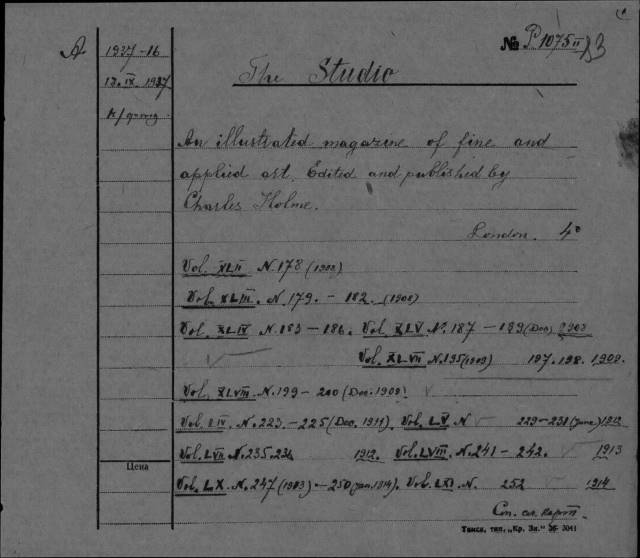 A 1937-16 № P 1075 II 33
13.IX.1937
The Studio
An illustrated magazine of fine and
applied art. Edited and published by
Charles Holme.
London. 4°
Vol. XLII N. 178 (1908)
Vol. XLIII. N. 179. - 182. (1908)
Vol. XLIV N. 183 - 186. Vol. XLV N. 187 - 189 (Dec) 1908
Vol. XLVII N. 195 (1909) 197. 198. 1909.
Vol. XLVIII N. 199 - 200 (Dec. 1909)
Vol. LIV. N. 223. - 225 (Dec. 1911). Vol. LV N 229 - 231 (June) 1912
Vol. LVII N. 235. 236 1912. Vol. LVIII. N. 241 - 242. 1913
Цена
Vol. LX. N. 247 (1913) - 250 (Jan. 1914). Vol. LXI. N. 252 1914
Томск, тип. „Кр. Зн.“ 3041